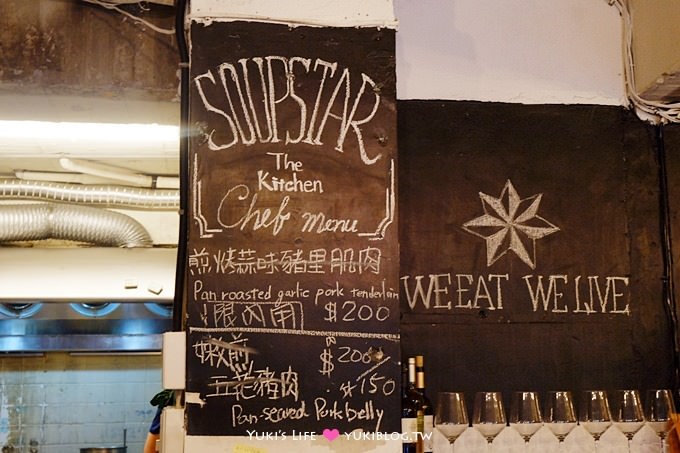 SOUPSTAR
The
Kitchen
Chef menu
煎烤蒜味豬里肌肉
Pan roasted garlic pork tenderloin
限內用 $200
嫩煎 $200
五花豬肉 $150
Pan-seared Porkbelly
WE EAT WE LIVE
YUKI'S LIFE YUKIBLOG.TW